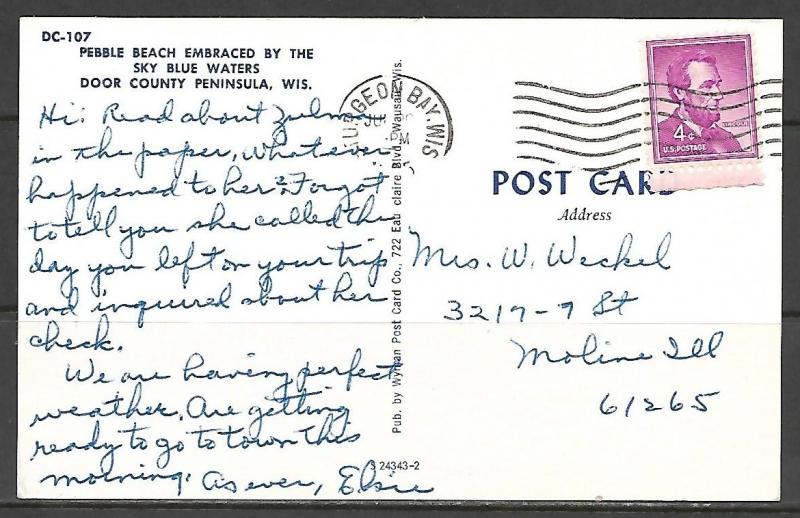 DC-107
PEBBLE BEACH EMBRACED BY THE
SKY BLUE WATERS
DOOR COUNTY PENINSULA, WIS.
Hi: Read about Zulma
in the paper, whatever
happened to her? Forgot
to tell you she called the
day you left on your trip
and inquired about her
check.
We are having perfect
weather. Are getting
ready to go to town this
morning. As ever, Elsie
Pub. by Wyman Post Card Co., 722 Eau claire Blvd., Wausau, Wis.
S 24343-2
STURGEON BAY, WIS
PM
LINCOLN
4¢
U.S. POSTAGE
POST CARD
Address
Mrs. W. Weckel
3219-7 St
Moline Ill
61265